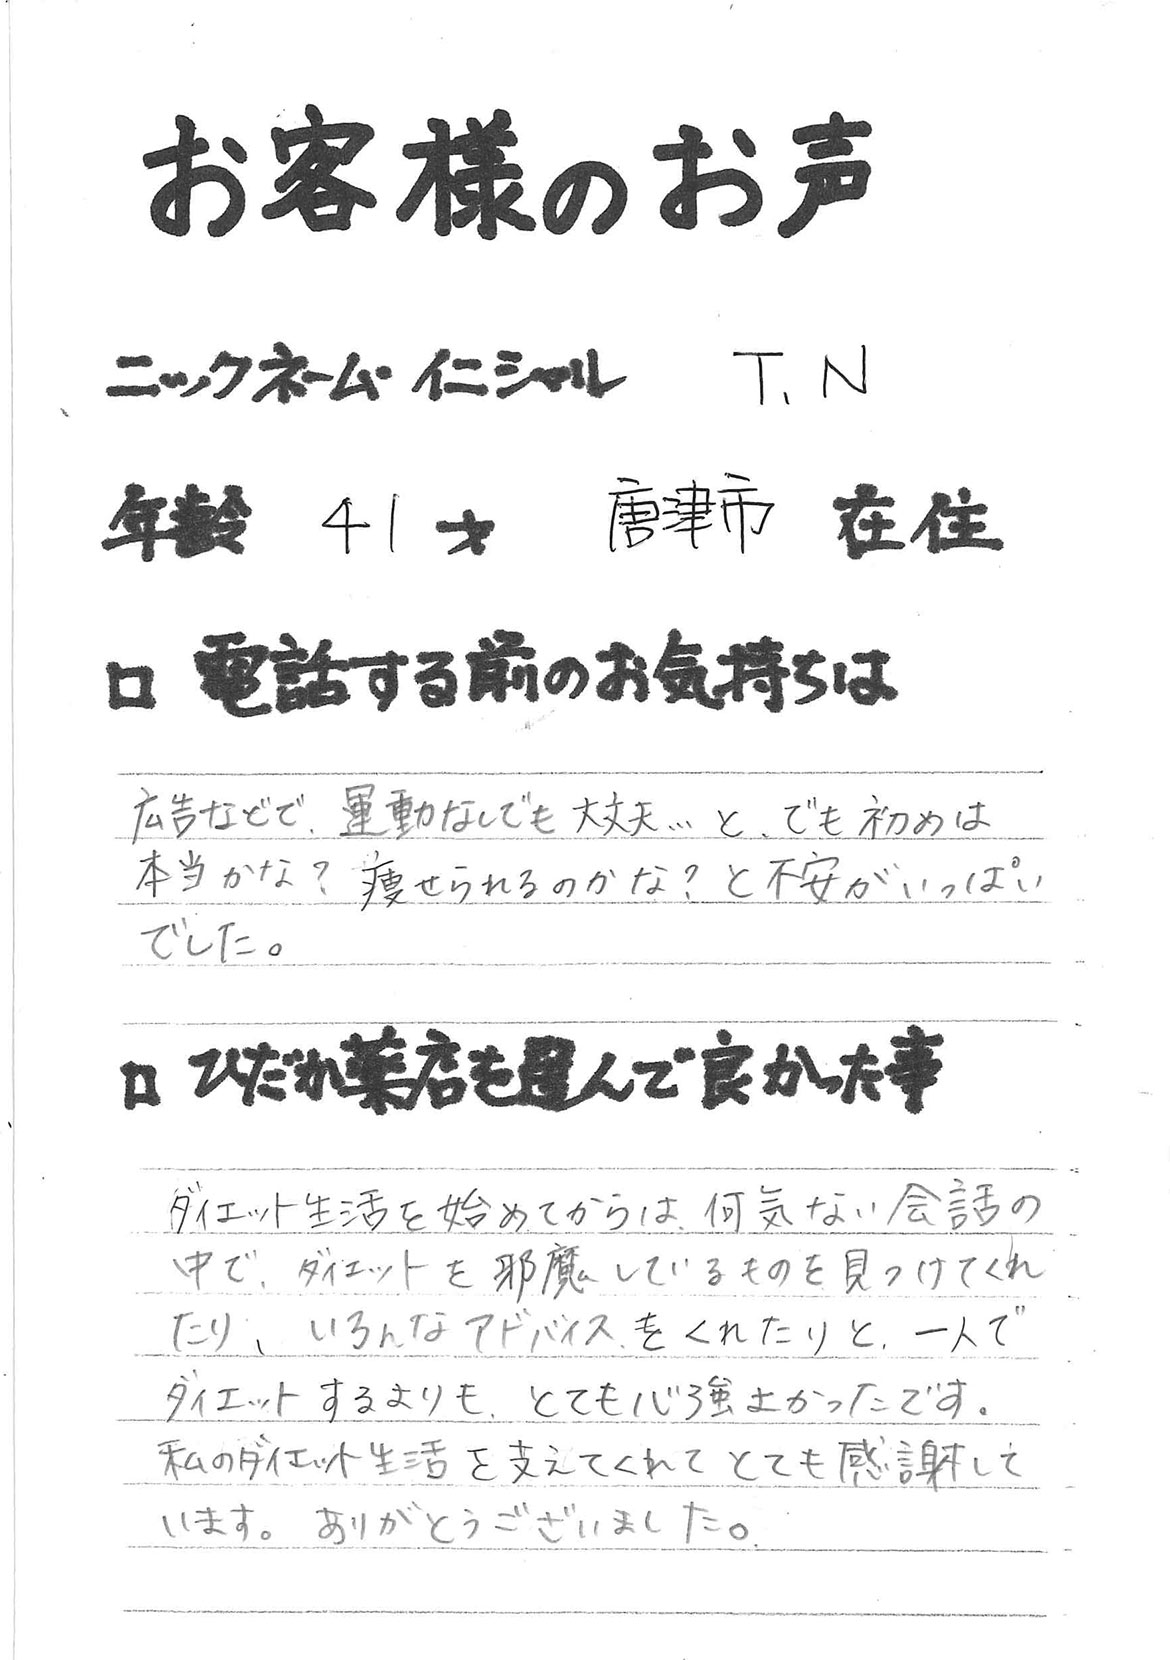 お客様のお声
ニックネーム・イニシャル T.N
年齢 41才 唐津市 在住
□ 電話する前のお気持ちは
広告などで、運動なしでも大丈夫…と、でも初めは
本当かな?痩せられるのかな?と不安がいっぱい
でした。
□ ひだか薬店を選んで良かった事
ダイエット生活を始めてからは、何気ない会話の
中で、ダイエットを邪魔しているものを見つけてくれ
たり、いろんなアドバイスをくれたりと、一人で
ダイエットするよりも、とても心強よかったです。
私のダイエット生活を支えてくれてとても感謝して
います。ありがとうございました。